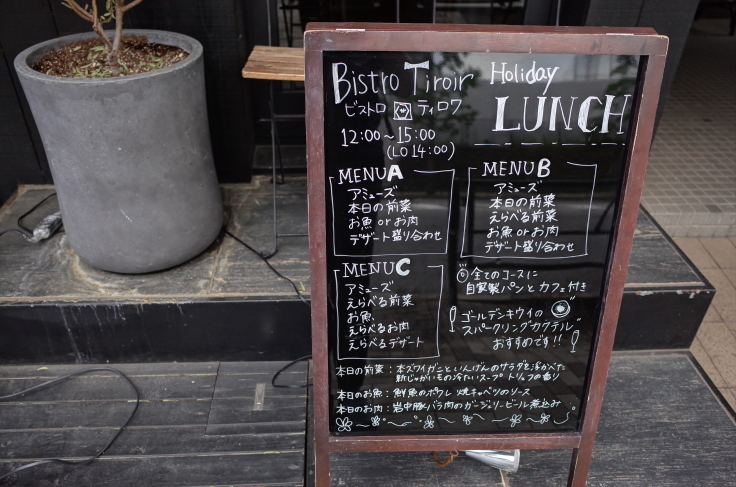 Bistro Tiroir
ビストロ ティロワ
12:00～15:00
(LO 14:00)
Holiday
LUNCH
MENU A
アミューズ
本日の前菜
お魚 or お肉
デザート盛り合わせ
MENU B
アミューズ
本日の前菜
えらべる前菜
お魚 or お肉
デザート盛り合わせ
MENU C
アミューズ
えらべる前菜
お魚
えらべるお肉
えらべるデザート
全てのコースに
自家製パンとカフェ付き
ゴールデンキウイの
スパークリングカクテル
おすすめです!!
本日の前菜：本ズワイガニといんげんのサラダを浮かべた
新じゃがいもの冷たいスープ トリュフの香り
本日のお魚：鮮魚のポワレ 焼キャベツのソース
本日のお肉：岩中豚バラ肉のガージェリービール煮込み